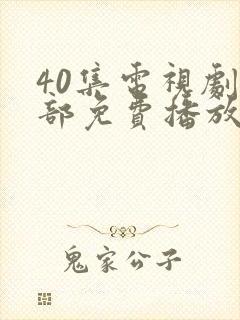 40集電視劇
部免費播放
鬼家公子